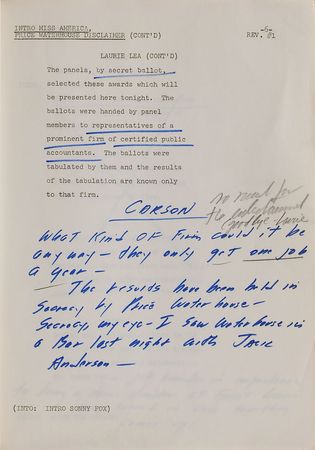 INTRO MISS AMERICA,
PRICE WATERHOUSE DISCLAIMER (CONT'D)
-6-
REV. #1
LAURIE LEA (CONT'D)
The panels, by secret ballot,
selected these awards which will
be presented here tonight. The
ballots were handed by panel
members to representatives of a
prominent firm of certified public
accountants. The ballots were
tabulated by them and the results
of the tabulation are known only
to that firm.
no need for
the
goodbye Laurie
CARSON
What Kind OF Firm could it be
any way - they only get one job
a year -
The results have been held in
Secrecy by Price Waterhouse -
Secrecy my eye - I saw Waterhouse in
a Bar last night with Jack
Anderson -
(INTO: INTRO SONNY FOX)